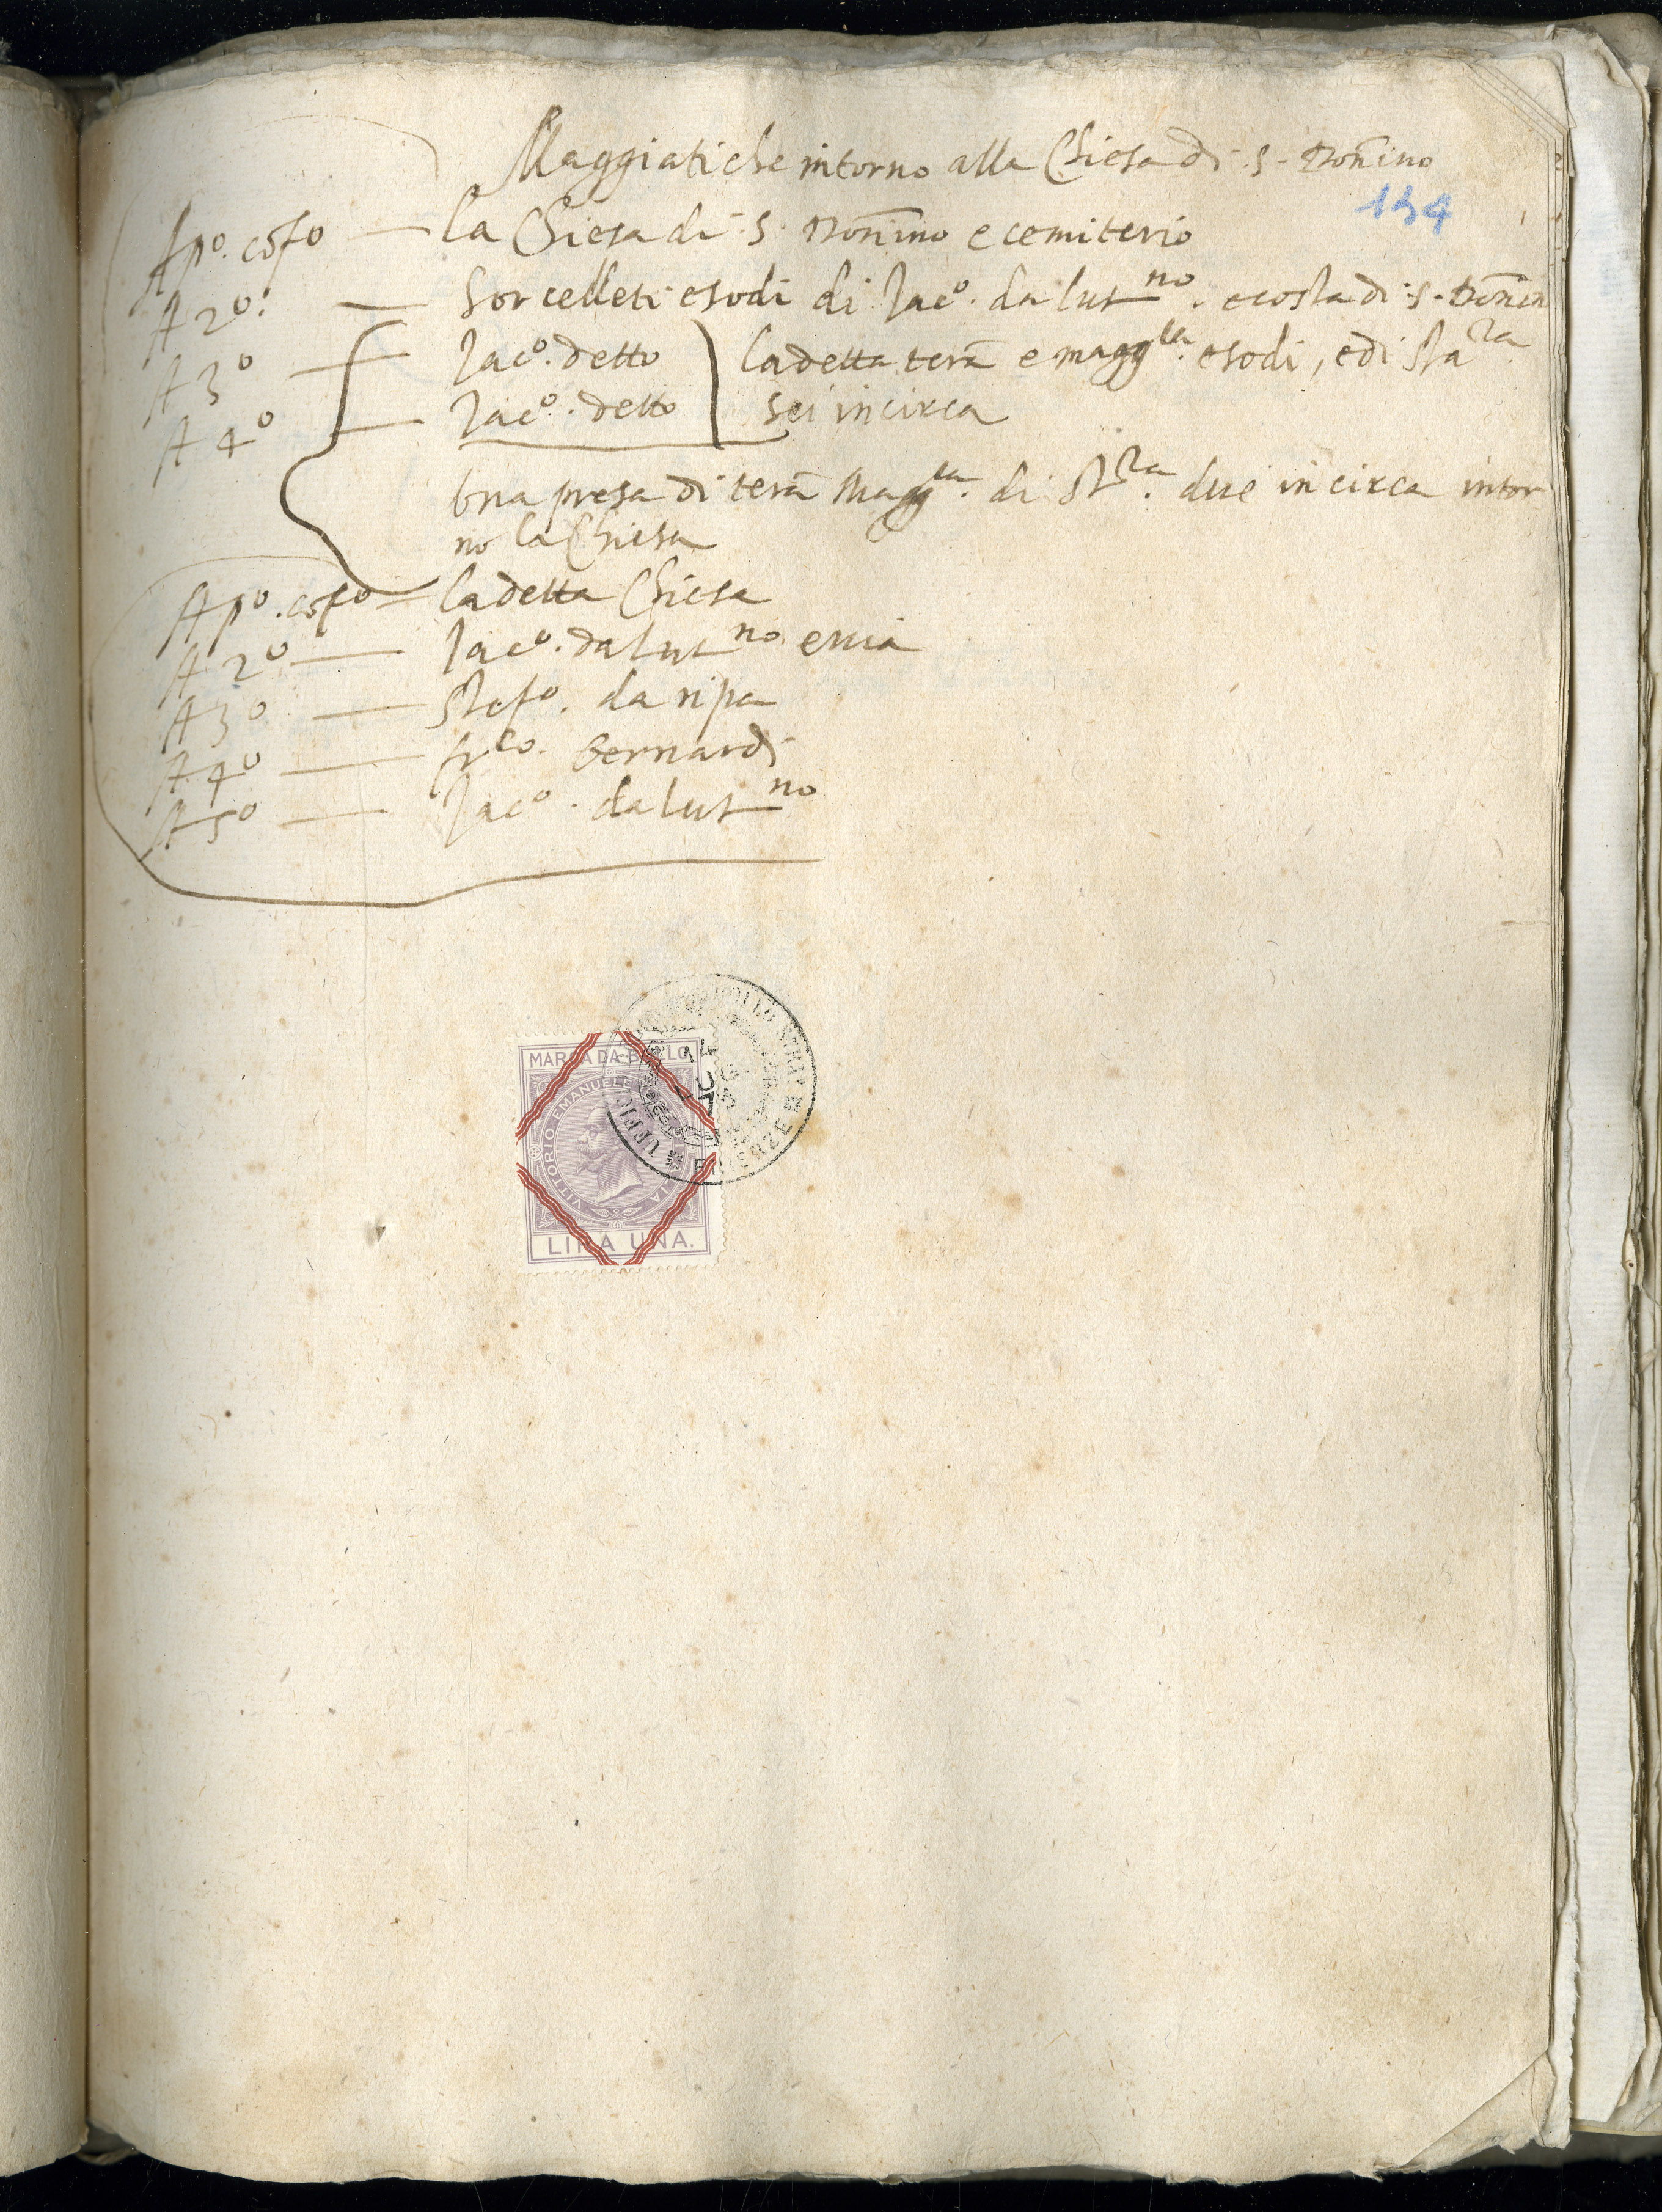 Maggiatiche intorno alla Chiesa di S. Dom̄ino
134
Ap.o cofo — la Chiesa di S. Dom̄ino e cemiterio
A 2o: — Sorcelleti esodi di Jac.o da lut.no e costa di S. Dom̄in
A 3o — Jac.o detto la detta terā e magg.lla esodi, e di sta.ra
A 4o — Jac.o detto sei incirca
Una presa di terā Magg.lla di st.ra due in circa intor
no la Chiesa
A p.o cofo — la detta Chiesa
A 2o — Jac.o da lut.no e via
A 3o — Stef.o da ripa
A 4o — fr.co bernardi
A 5o — Jac.o da lut.no
MARCA DA BOLLO
VITTORIO EMANUELE
LIRA UNA.
FIRENZE